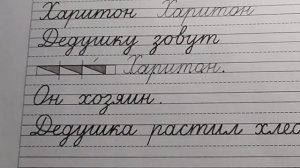 Харитон Харитон
Дедушку зовут
Харитон.
Он хозяин.
Дедушка растил хлеб